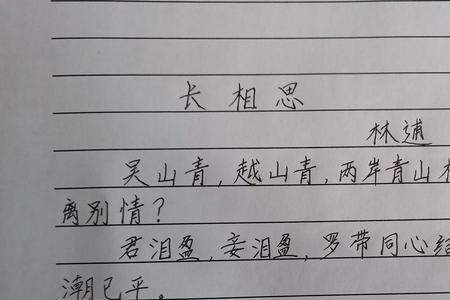 长相思
林逋
吴山青,越山青,两岸青山
离别情?
君泪盈,妾泪盈,罗带同心结
潮已平。